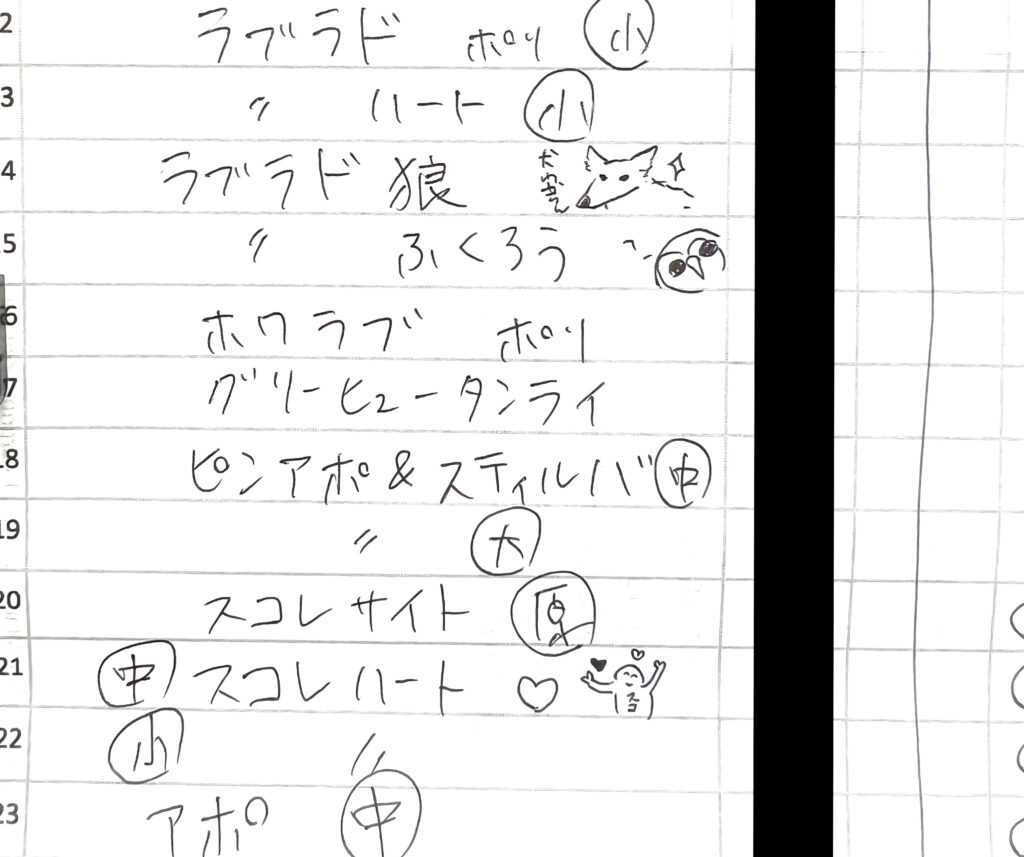 2 ラブラド ポリ 小
3 〃 ハート 小
4 ラブラド 狼
5 〃 ふくろう
6 ホワラブ ポリ
7 グリーヒュータンライ
18 ピンアポ&スティルバ 中
19 〃 大
20 スコレサイト 原
21 中 スコレハート ♡ スコ
22 小 〃
23 アポ 中